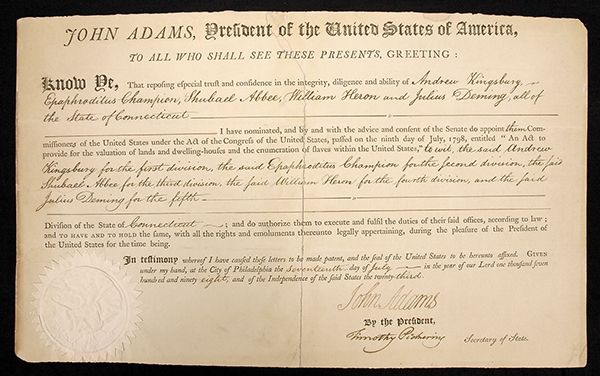 JOHN ADAMS, President of the United States of America,
TO ALL WHO SHALL SEE THESE PRESENTS, GREETING:
Know Ye, That reposing especial trust and confidence in the integrity, diligence and ability of Andrew Kingsbury,
Epaphroditus Champion, Shubael Abbee, William Heron and Julius Deming, all of
the State of Connecticut
I have nominated, and by and with the advice and consent of the Senate do appoint them Com-
missioners of the United States under the Act of the Congress of the United States, passed on the ninth day of July, 1798, entitled "An Act to
provide for the valuation of lands and dwelling-houses and the enumeration of slaves within the United States," to wit, the said Andrew
Kingsbury for the first division, the said Epaphroditus Champion for the second division, the said
Shubael Abbe for the third division, the said William Heron for the fourth division, and the said
Julius Deming for the fifth
Division of the State of Connecticut; and do authorize them to execute and fulfil the duties of their said offices, according to law;
and TO HAVE AND TO HOLD the same, with all the rights and emoluments thereunto legally appertaining, during the pleasure of the President of
the United States for the time being.
In testimony whereof I have caused these letters to be made patent, and the seal of the United States to be hereunto affixed. GIVEN
under my hand, at the City of Philadelphia the seventeenth day of July in the year of our Lord one thousand seven
hundred and ninety eight, and of the Independence of the said States the twenty-third.
John Adams
By the President,
Timothy Pickering Secretary of State.